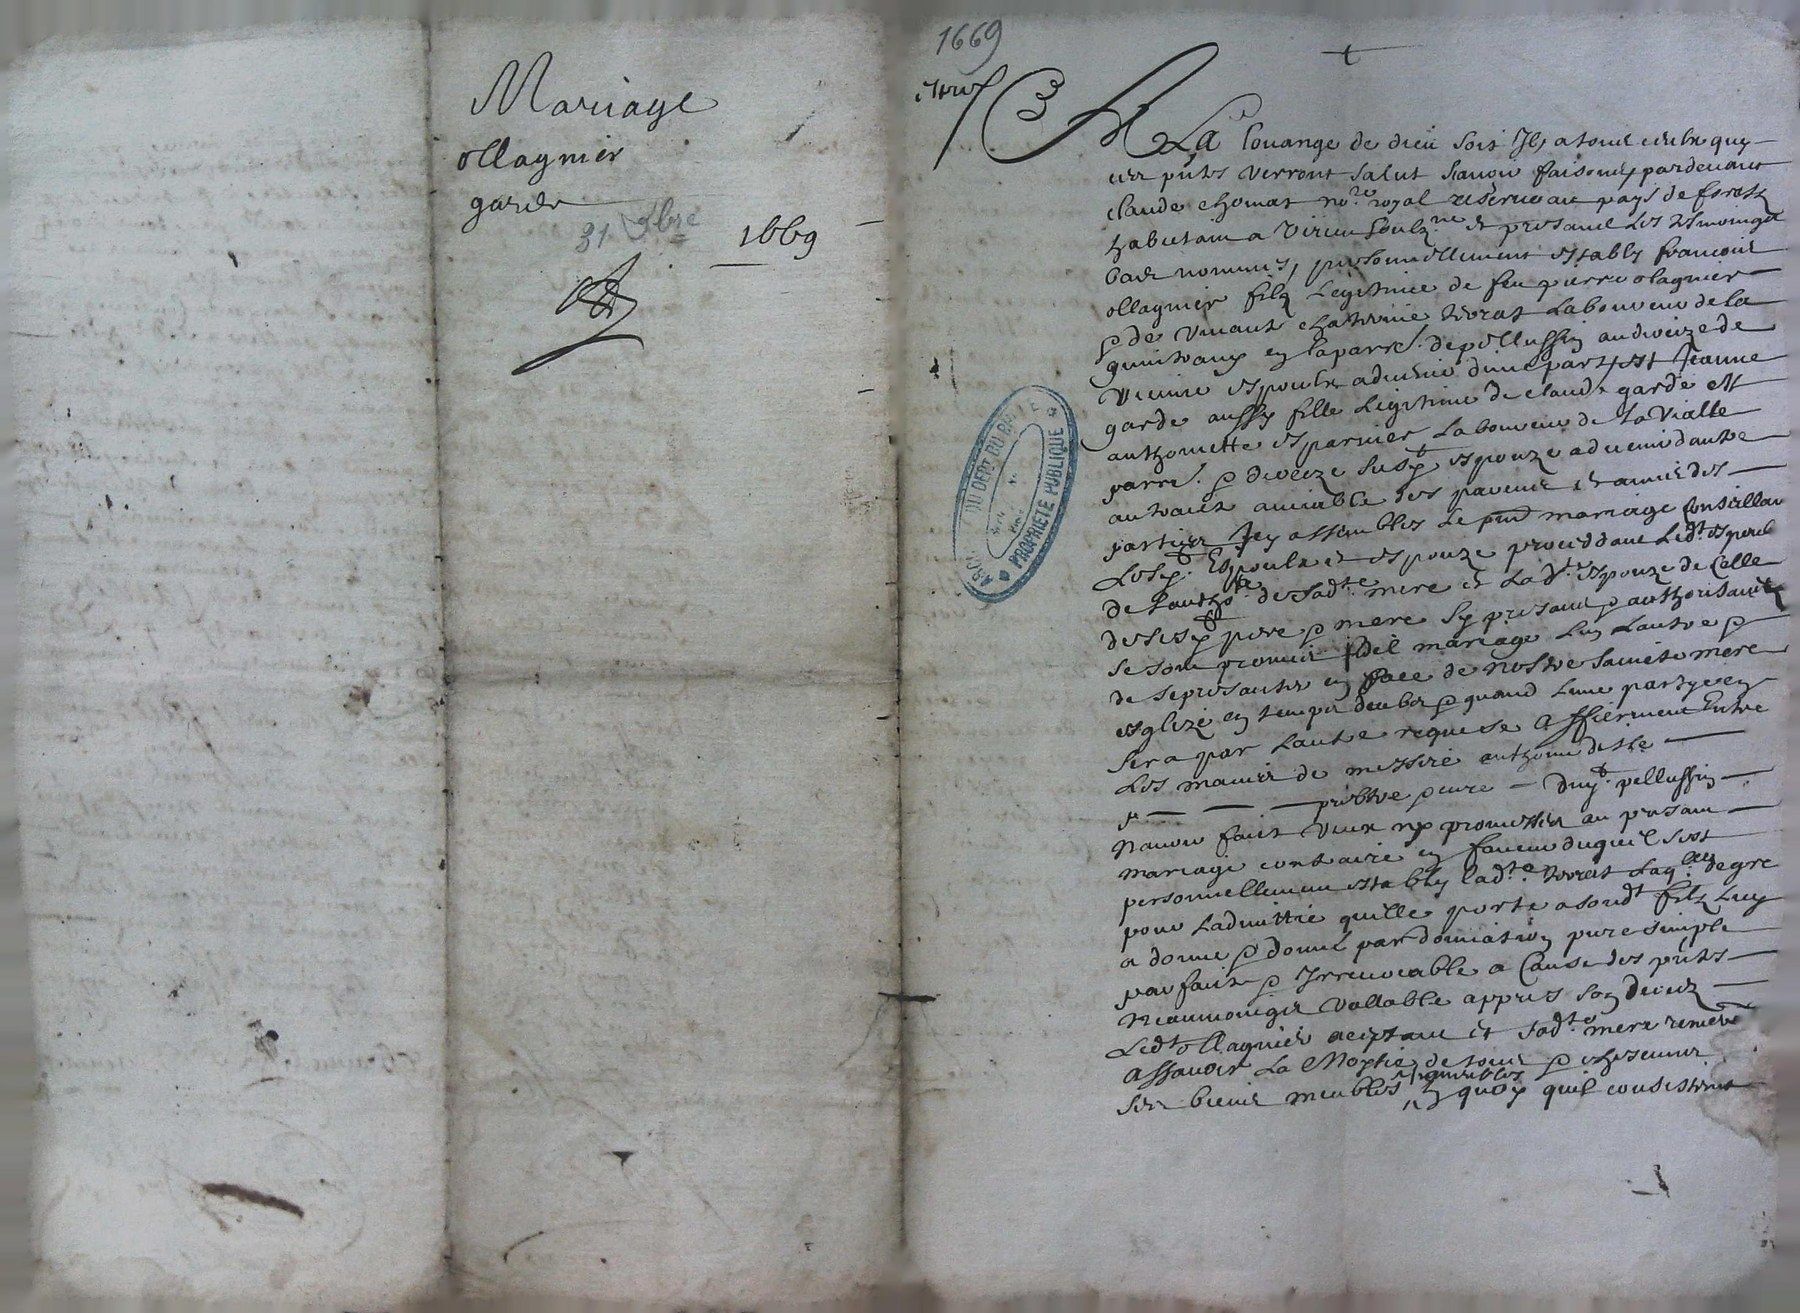 Mariage
ollagnier
garde
31 xbre 1669
1669
A La louange de dieu soit Il a tous ceulx quy
ces pntes verront salut scavoir faisons, pardevant
claude chomat no.re royal reservé au pays de foretz
habictant a Virieu soubz.ne et presans les tesmoings
bas nommes, personnellement establys francois
ollagnier filz Legitime de feu pierre olagnier
& de vivant catherine terrat Laboureur de la
en la parre. de pellussin au dioceze de
Vienne espoulx advenir d'une part, et Jeanne
garde aussy fille Legitime de claude garde et
anthoinette esparnier Laboureur de la Vialle
parre. & dioceze susd. espouze advenir d'autre
autraict amiable des parens et amis des
parties Icy assembles Le pnt mariage Conseillant
Lesd. Espoulx et espouze procedant Ledt. espoulx
de L'autho.te de sad.te mere et lad.te espouze de Celle
de sesd. pere & mere Icy presans & authorisants
se sont promis fidel mariage L'un L'autre &
de se presanter en face de nostre saincte mere
esglize en temps deub & quand L'une partye en
sera par L'autre requise Affierment Entre
Les mains de messire anthoine
prebtre & cure dud. pellussin
N'avoir faict veux ny promesses au presant
mariage contraire en faveur duquel s'est
personnellement establye lad.te terrat Laq.lle de gre
pour L'admittie qu'elle porte a sondt filz Luy
a donne & donne par donnation pure simple
parfaict & Irrevocable a Cause des pntes
neaumoingz vallable appres son deces
Ledt ollagnier aceptant et sad.te mere remer.
assavoir La Moytie de tous & chescuns
ses biens meubles Immeubles en quoy quil consistent
DU DEPT DU RHONE
PROPRIETE PUBLIQUE